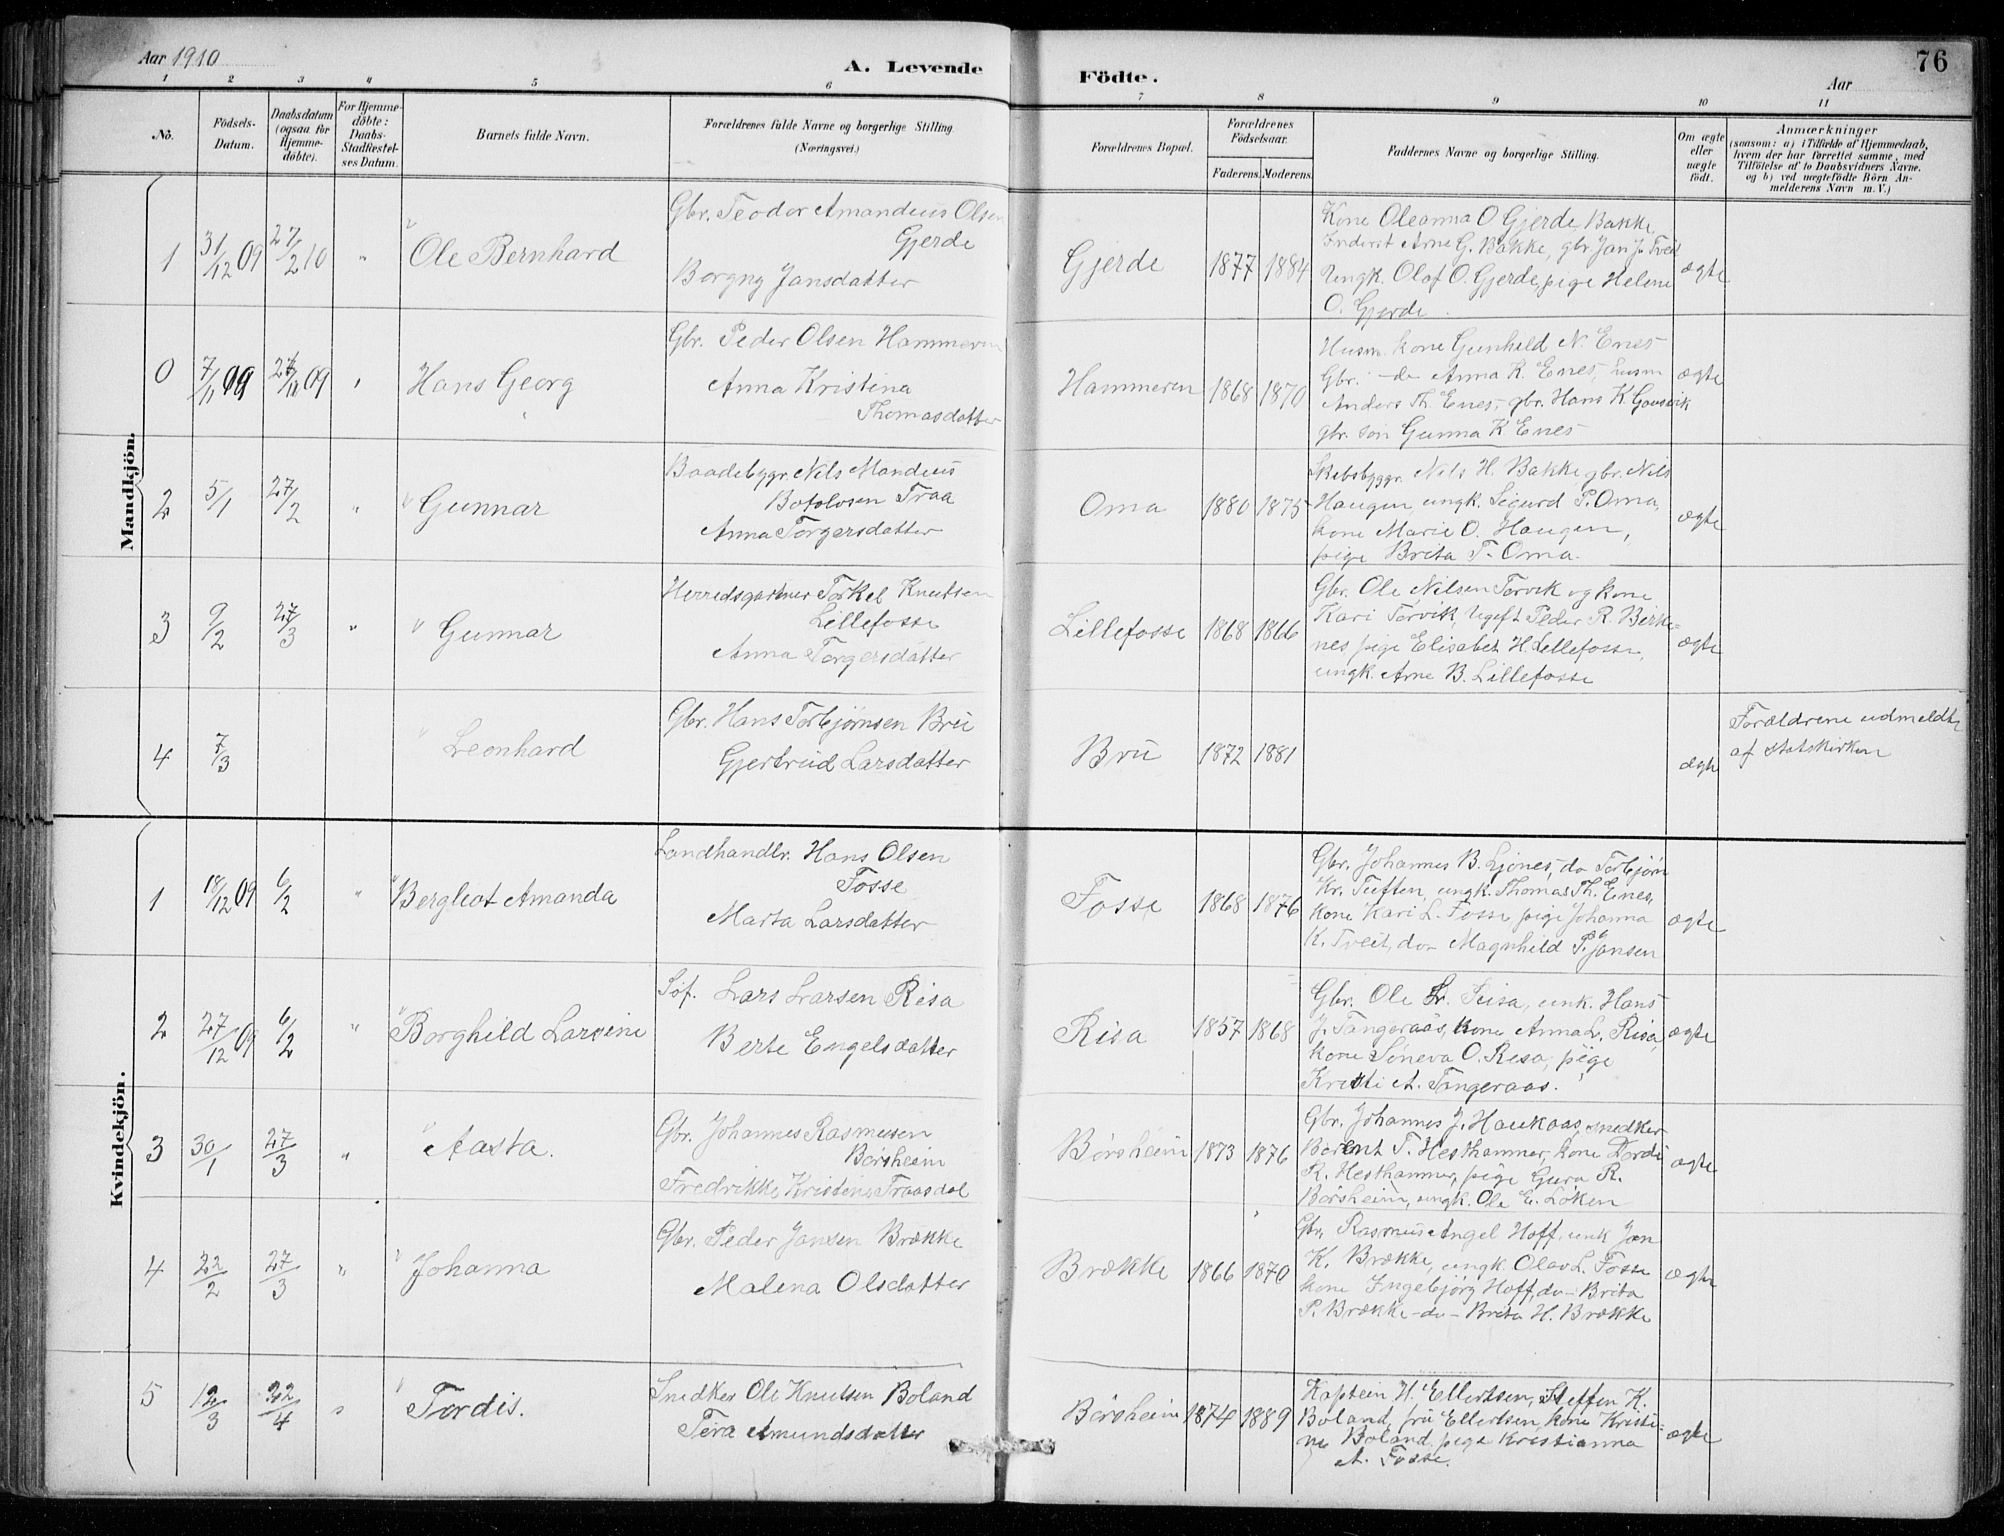 Aar 1910
A. Levende Födte.
Aar
76
1 2 3 4 5 6 7 8 9 10 11
No.
Födsels-Datum.
Daabsdatum (ogsaa for Hjemme-döbte).
For Hjemme-döbte: Daabs-Stadfæstelses Datum.
Barnets fulde Navn.
Forældrenes fulde Navne og borgerlige Stilling. (Næringsvei.)
Forældrenes Bopæl.
Forældrenes Födselsaar.
Faderens. Moderens.
Faddernes Navne og borgerlige Stilling.
Om ægte eller uægte födt.
Anmærkninger
(saasom: a) i Tilfælde af Hjemmedaab, hvem der har forrettet samme, med Tilföielse af to Daabsvidners Navne, og b) ved uægtefödte Börn Anmelderens Navn m. V.)
Mandkjön.
1 31/12 09 27/2 10 " Ole Bernhard
Gbr. Teodor Amandeus Olsen
Gjerde
Borgny Jansdatter
Gjerde 1877 1884
Kone Oleanna O. Gjerde, Bakke,
Inderst Arne G. Bakke, gbr. Jan J. Tveit
Ungk. Olaf O. Gjerde, pige Helene
O. Gjerde
ægte
0 7/11 09 27/11 09 " Hans Georg
Gbr. Peder Olsen Hammeren
Anna Kristina
Thomasdatter
Hammeren 1868 1870
Husm. kone Gunhild N. Enes
Gbr. - do Anna K. Enes, husm
Anders Th. Enes, gbr. Hans K. Gausvik
gbr. søn Gunna K. Enes
ægte
2 5/1 27/2 " Gunnar
Baadebyggr. Nils Mandius
Botolvsen Traa
Anna Torgersdatter
Oma 1880 1875
Skibsbyggr. Nils H. Bakke, gbr. Nils
Haugen, ungk. Sigurd P. Oma,
kone Marie O. Haugen,
pige Brita T. Oma.
ægte
3 9/2 27/3 " Gunnar
Herredsgartner Torkel Knutsen
Lillefosse
Anna Torgersdatter
Lillefosse 1868 1866
Gbr. Ole Nilsen Torvik og kone
Kari Torvik, Ugift Peder R. Birke-
nes pige Elisabet H. Lillefosse,
ungk. Arne B. Lillefosse
ægte
4 7/3 " Leonhard
Gbr. Hans Torbjørnsen Bru
Gjertrud Larsdatter
Bru 1872 1881
ægte
Forældrene udmeldte
af statskirken
Kvindekjön.
1 18/12 09 6/2 " Bergliot Amanda
Landhandlr. Hans Olsen
Fosse
Marta Larsdatter
Fosse 1868 1876
Gbr. Johannes B. Ljønes, do Torbjørn
Kr. Tuften, ungk. Thomas Th. Enes,
kone Kari L. Fosse, pige Johanna
K. Tveit, do Magnhild P. Jansen
ægte
2 27/12 09 6/2 " Borghild Larsine
Søf. Lars Larsen Risa
Berte Engelsdatter
Risa 1857 1868
Gbr. Ole Risa, unk. Hans
J. Tangeraas, kone Anna L. Risa,
kone Søneva O. Risa, pige
Kristi A. Tangeraas.
ægte
3 30/1 27/3 " Aasta.
Gbr. Johannes Rasmusen
Børsheim
Fredrikke Kristine Traasdal
Børsheim 1873 1876
Gbr. Johannes J. Haukaas, snedker
Berent T. Hesthammer, kone Dordi
R. Hesthammer, pige Guro R.
Børsheim, ungk. Ole E. Løken
ægte
4 22/2 27/3 " Johanna
Gbr. Peder Jansen Brække
Malena Olsdatter
Brække 1866 1870
Gbr. Rasmus Angel Hoff, unk Jan
K. Brække, ungk. Olav L. Fosse
kone Ingebjørg Hoff, do - Brita
P. Brække - do - Brita H. Brække
ægte
5 12/3 22/4 " Tordis.
Snedker Ole Knutsen Boland
Tera Amundsdatter
Børsheim 1874 1889
Kaptein H. Ellertsen, Steffen K.
Boland, fru Ellertsen, kone Kristi-
ne Boland, pige Kristianna
A. Fosse.
ægte